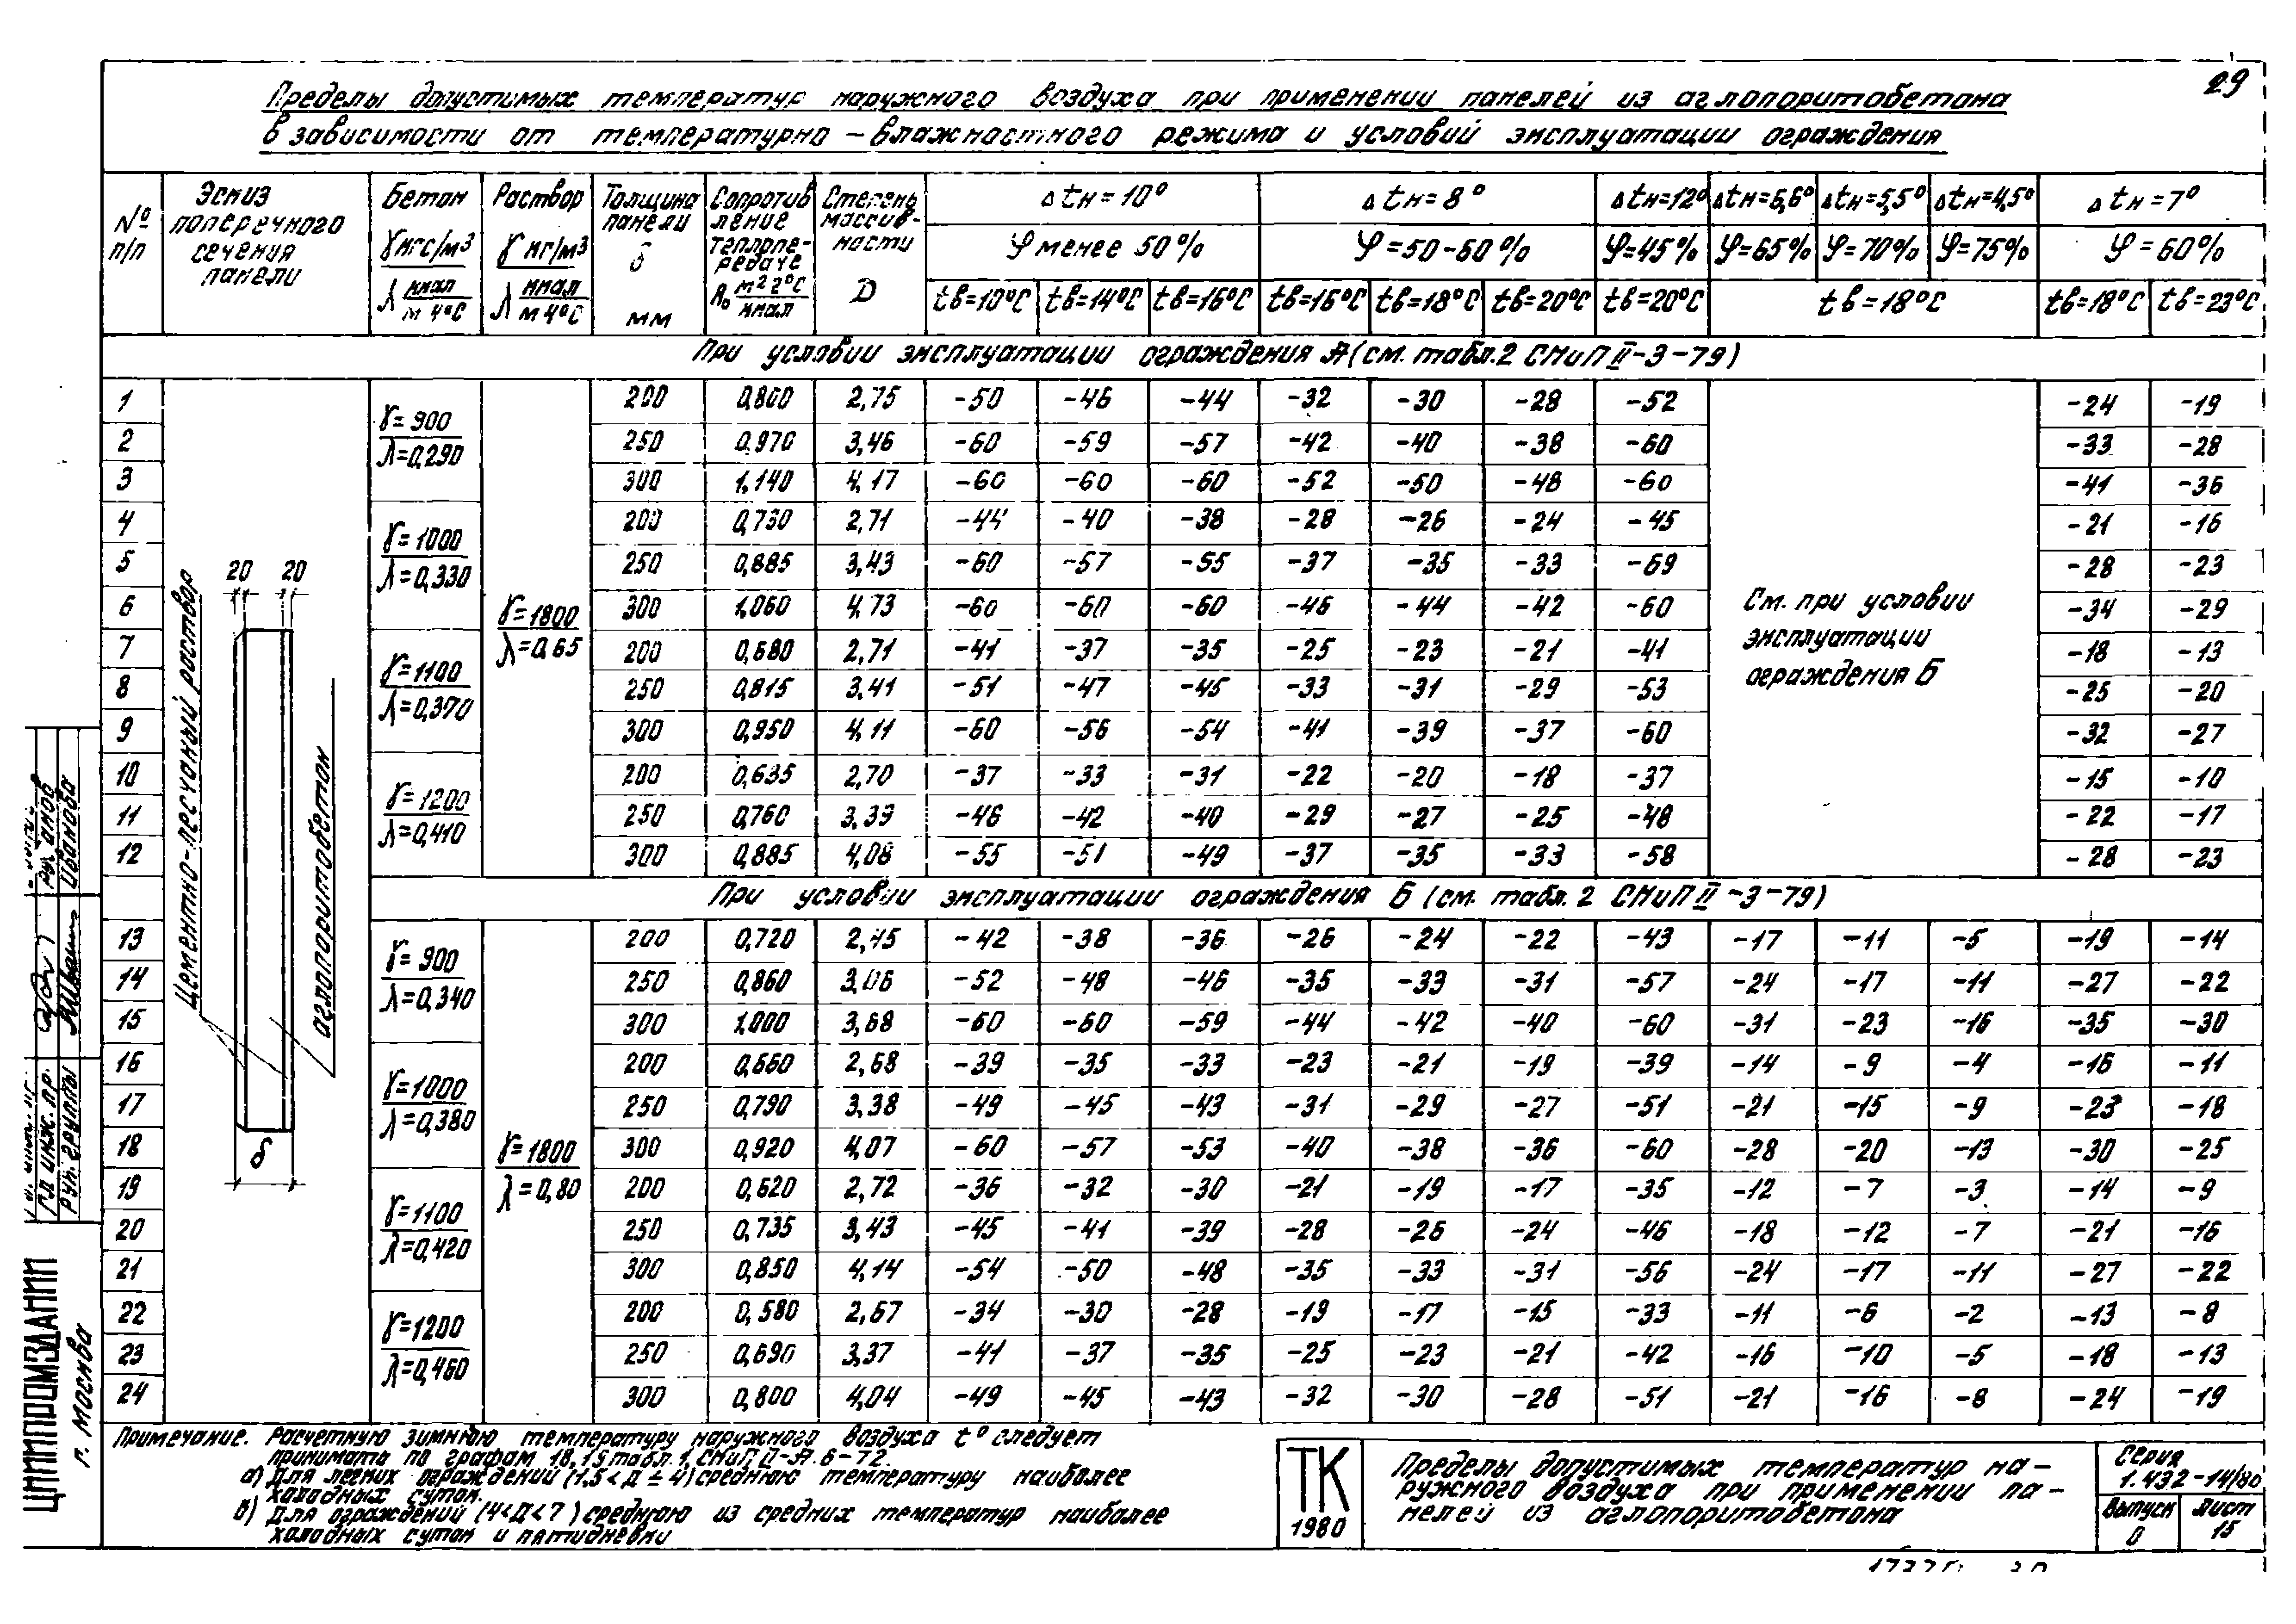 29
Пределы допустимых температур наружного воздуха при применении панелей из аглопоритобетона
в зависимости от температурно-влажностного режима и условий эксплуатации ограждения
№ п/п
Эскиз поперечного сечения панели
Бетон γ кгс/м³ λ ккал/м ч°С
Раствор γ кг/м³ λ ккал/м ч°С
Толщина панели δ мм
Сопротивление теплопередаче R₀ м² г°С/ккал
Степень массивности D
Δtн=10° Δtн=8° Δtн=12° Δtн=6,6° Δtн=5,5° Δtн=4,5° Δtн=7°
φ менее 50% φ=50-60% φ=45% φ=65% φ=70% φ=75% φ=60%
tв=10°С tв=14°С tв=16°С tв=16°С tв=18°С tв=20°С tв=20°С tв=18°С tв=18°С tв=23°С
При условии эксплуатации ограждения А (см. табл. 2 СНиП II-3-79)
γ=900 λ=0,290
γ=1000 λ=0,330
γ=1100 λ=0,370
γ=1200 λ=0,410
γ=1800 λ=0,65
1 200 0,800 2,75 -50 -46 -44 -32 -30 -28 -52 -24 -19
2 250 0,970 3,46 -60 -59 -57 -42 -40 -38 -60 -33 -28
3 300 1,140 4,17 -60 -60 -60 -52 -50 -48 -60 -41 -36
4 200 0,730 2,71 -44 -40 -38 -28 -26 -24 -45 -21 -16
5 250 0,885 3,43 -60 -57 -55 -37 -35 -33 -69 -28 -23
6 300 1,060 4,73 -60 -60 -60 -46 -44 -42 -60 -34 -29
7 200 0,680 2,71 -41 -37 -35 -25 -23 -21 -41 -18 -13
8 250 0,815 3,41 -51 -47 -45 -33 -31 -29 -53 -25 -20
9 300 0,950 4,11 -60 -56 -54 -41 -39 -37 -60 -32 -27
10 200 0,635 2,70 -37 -33 -31 -22 -20 -18 -37 -15 -10
11 250 0,760 3,39 -46 -42 -40 -29 -27 -25 -48 -22 -17
12 300 0,885 4,08 -55 -51 -49 -37 -35 -33 -58 -28 -23
См. при условии
эксплуатации
ограждения Б
При условии эксплуатации ограждения Б (см. табл. 2 СНиП II-3-79)
γ=900 λ=0,340
γ=1000 λ=0,380
γ=1100 λ=0,420
γ=1200 λ=0,460
γ=1800 λ=0,80
13 200 0,720 2,45 -42 -38 -36 -26 -24 -22 -43 -17 -11 -5 -19 -14
14 250 0,860 3,06 -52 -48 -46 -35 -33 -31 -57 -24 -17 -11 -27 -22
15 300 1,000 3,68 -60 -60 -59 -44 -42 -40 -60 -31 -23 -16 -35 -30
16 200 0,660 2,68 -39 -35 -33 -23 -21 -19 -39 -14 -9 -4 -16 -11
17 250 0,790 3,38 -49 -45 -43 -31 -29 -27 -51 -21 -15 -9 -23 -18
18 300 0,920 4,07 -60 -57 -53 -40 -38 -36 -60 -28 -20 -13 -30 -25
19 200 0,620 2,72 -36 -32 -30 -21 -19 -17 -35 -12 -7 -3 -14 -9
20 250 0,735 3,43 -45 -41 -39 -28 -26 -24 -46 -18 -12 -7 -21 -16
21 300 0,850 4,14 -54 -50 -48 -35 -33 -31 -56 -24 -17 -11 -27 -22
22 200 0,580 2,67 -34 -30 -28 -19 -17 -15 -33 -11 -6 -2 -13 -8
23 250 0,690 3,37 -41 -37 -35 -25 -23 -21 -42 -16 -10 -5 -18 -13
24 300 0,800 4,04 -49 -45 -43 -32 -30 -28 -51 -21 -16 -8 -24 -19
20 20
Цементно-песчаный раствор
аглопоритобетон
δ
Примечание. Расчетную зимнюю температуру наружного воздуха t° следует
принимать по графам 18, 15 табл. 1, СНиП II-А.6-72.
а) Для легких ограждений (1,5 < Д ≤ 4) среднюю температуру наиболее
холодных суток.
в) Для ограждений (4<Д<7) среднюю из средних температур наиболее
холодных суток и пятидневки
ТК
1980
Пределы допустимых температур на-
ружного воздуха при применении па-
нелей из аглопоритобетона
Серия
1.432-14/80
Выпуск
0
Лист
15
ЦНИИПРОМЗДАНИЙ
г. Москва
Гл. инж. пр.
Рук. группы
Иванова